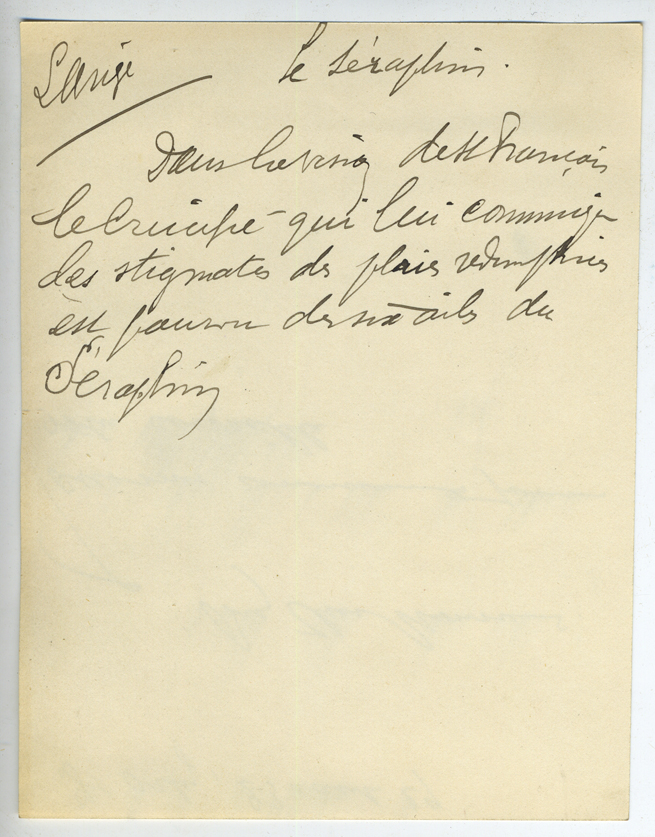 L'ange
le Séraphin.
Dans la vision de St François
le Crucifié qui lui communique
les stigmates des plaies rédemptrices
est pourvu des six ailes du
Séraphin